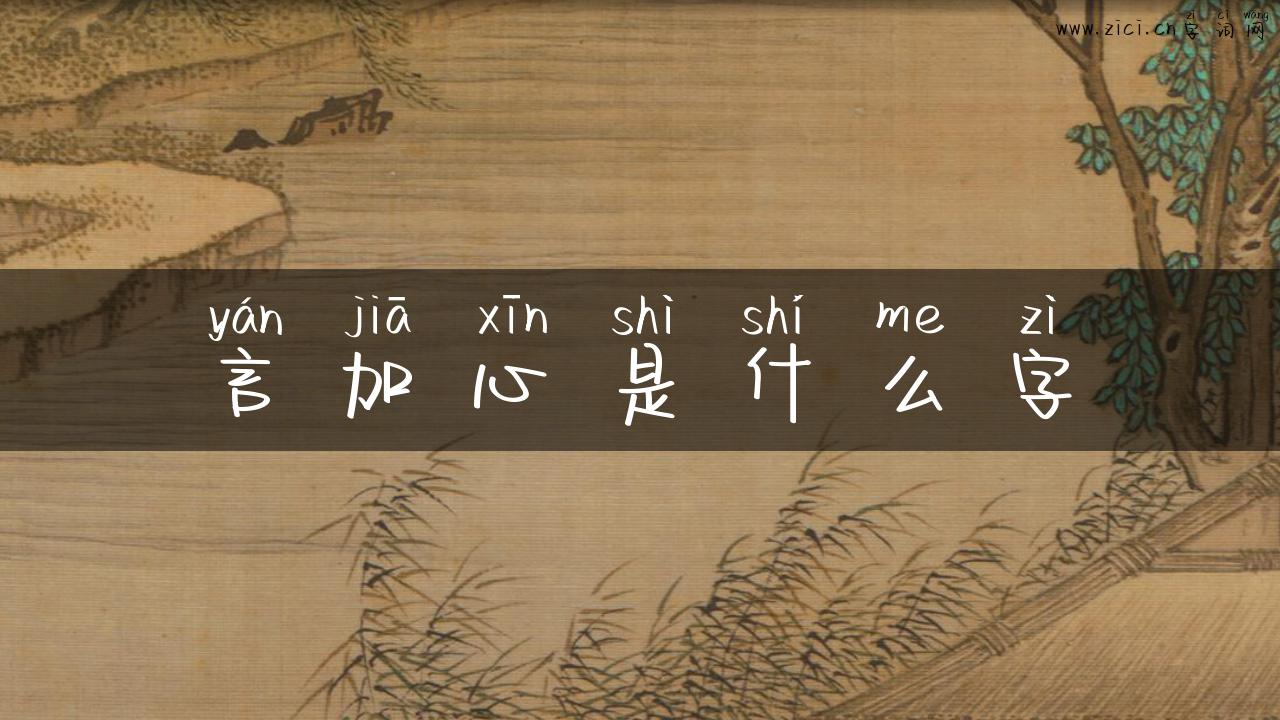 zì cí wǎng
www.zici.cn字词网
yán jiā xīn shì shí me zì
言加心是什么字